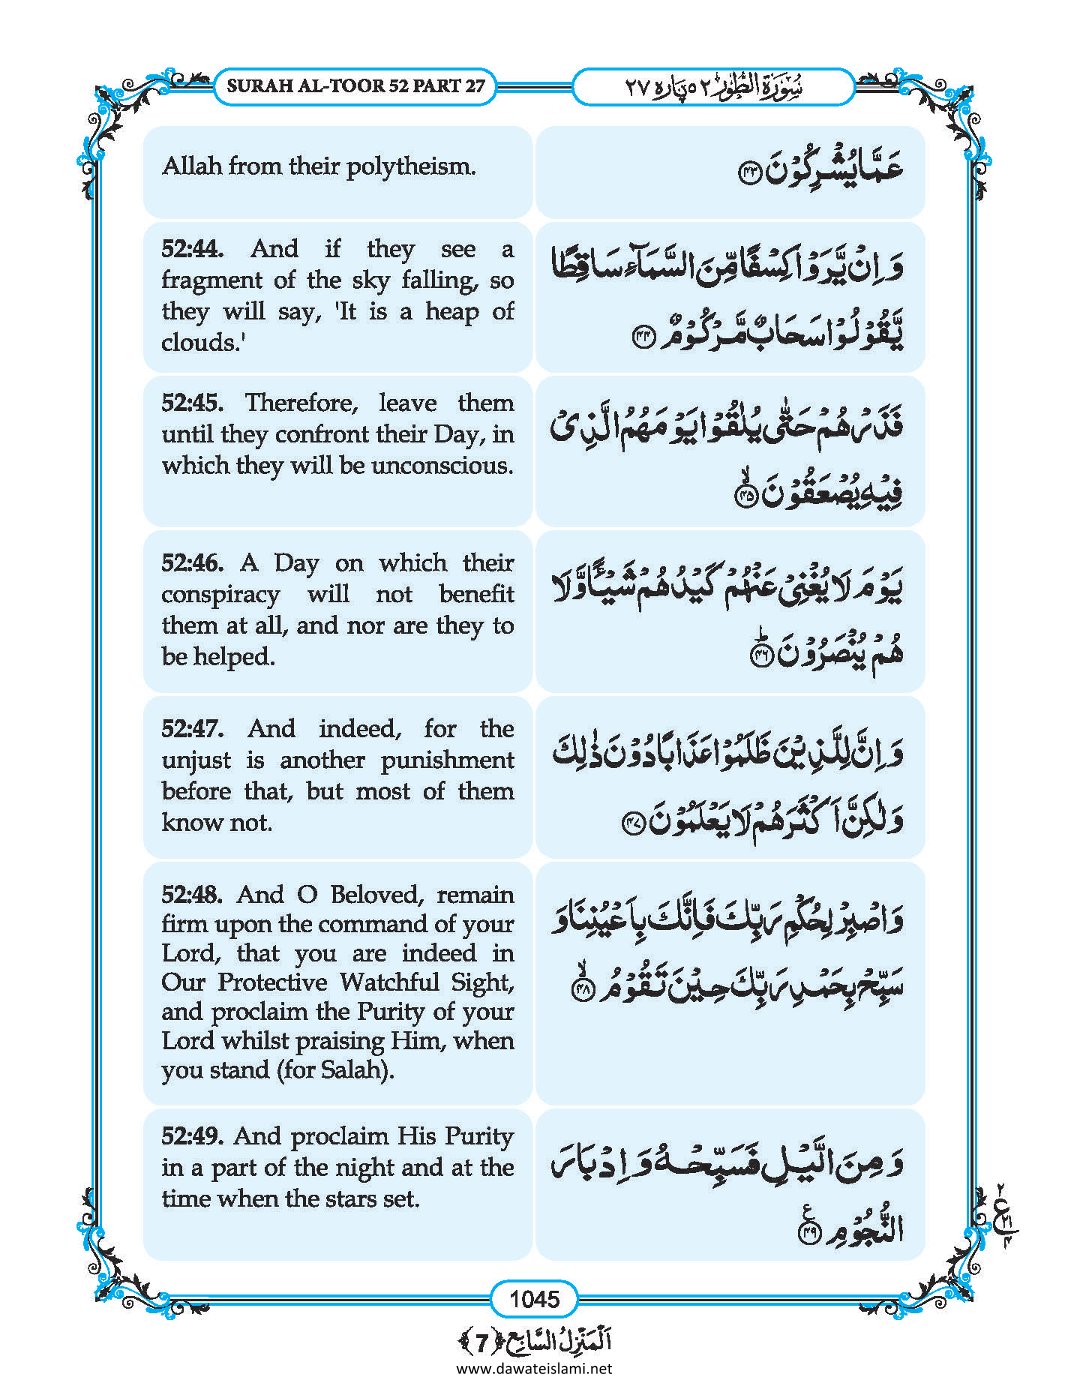 SURAH AL-TOOR 52 PART 27
سُوْرَةُ الطُّوْر ٥٢ پاره ٢٧
Allah from their polytheism.
عَمَّا يُشْرِكُوْنَ ﴿۴۳﴾
52:44. And if they see a
fragment of the sky falling, so
they will say, 'It is a heap of
clouds.'
وَ اِنْ يَّرَوْا كِسْفًا مِّنَ السَّمَآءِ سَاقِطًا
يَّقُوْلُوْا سَحَابٌ مَّرْكُوْمٌ ﴿۴۴﴾
52:45. Therefore, leave them
until they confront their Day, in
which they will be unconscious.
فَذَرْهُمْ حَتّٰى يُلٰقُوْا يَوْمَهُمُ الَّذِیْ
فِيْهِ يُصْعَقُوْنَ ﴿ۙ۴۵﴾
52:46. A Day on which their
conspiracy will not benefit
them at all, and nor are they to
be helped.
يَوْمَ لَا يُغْنِیْ عَنْهُمْ كَيْدُهُمْ شَيْـًٔا وَّ لَا
هُمْ يُنْصَرُوْنَ ﴿ؕ۴۶﴾
52:47. And indeed, for the
unjust is another punishment
before that, but most of them
know not.
وَ اِنَّ لِلَّذِيْنَ ظَلَمُوْا عَذَابًا دُوْنَ ذٰلِكَ
وَلٰكِنَّ اَكْثَرَهُمْ لَا يَعْلَمُوْنَ ﴿۴۷﴾
52:48. And O Beloved, remain
firm upon the command of your
Lord, that you are indeed in
Our Protective Watchful Sight,
and proclaim the Purity of your
Lord whilst praising Him, when
you stand (for Salah).
وَ اصْبِرْ لِحُكْمِ رَبِّكَ فَاِنَّكَ بِاَعْيُنِنَا وَ
سَبِّحْ بِحَمْدِ رَبِّكَ حِيْنَ تَقُوْمُ ﴿ۙ۴۸﴾
52:49. And proclaim His Purity
in a part of the night and at the
time when the stars set.
وَ مِنَ الَّيْلِ فَسَبِّحْهُ وَ اِدْبَارَ
النُّجُوْمِ ﴿۴۹﴾ ع
٢
ع ٢١
۴
1045
اَلْمَنْزِلُ السَّابِع ﴿7﴾
www.dawateislami.net